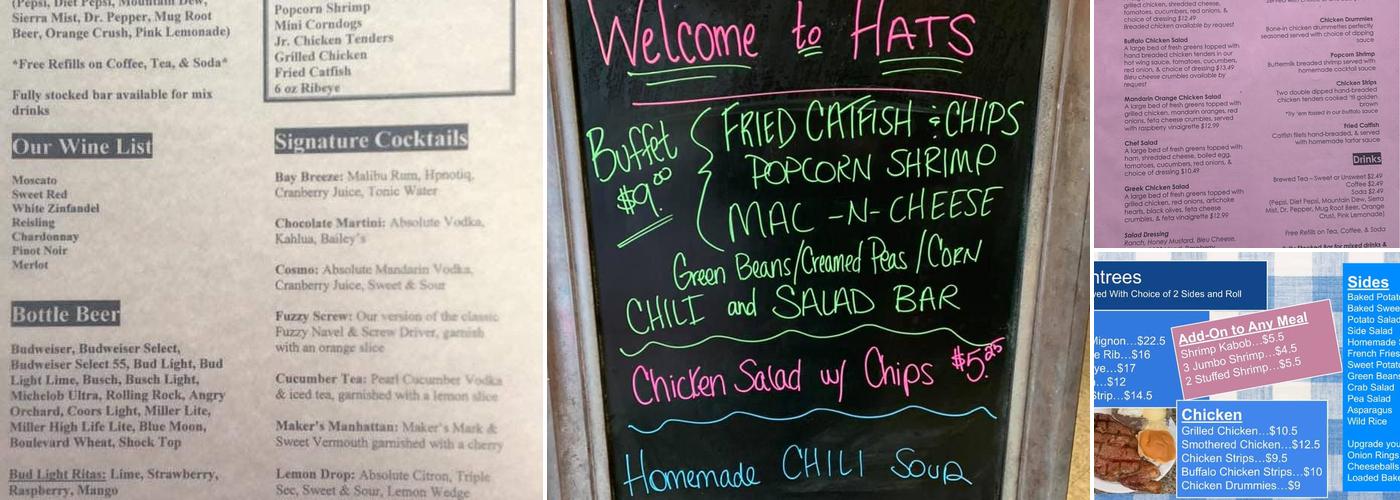 (Pepsi, Diet Pepsi, Mountain Dew,
Sierra Mist, Dr. Pepper, Mug Root
Beer, Orange Crush, Pink Lemonade)
*Free Refills on Coffee, Tea, & Soda*
Fully stocked bar available for mix
drinks
Our Wine List
Moscato
Sweet Red
White Zinfandel
Reisling
Chardonnay
Pinot Noir
Merlot
Bottle Beer
Budweiser, Budweiser Select,
Budweiser Select 55, Bud Light, Bud
Light Lime, Busch, Busch Light,
Michelob Ultra, Rolling Rock, Angry
Orchard, Coors Light, Miller Lite,
Miller High Life Lite, Blue Moon,
Boulevard Wheat, Shock Top
Bud Light Ritas: Lime, Strawberry,
Raspberry, Mango
Popcorn Shrimp
Mini Corndogs
Jr. Chicken Tenders
Grilled Chicken
Fried Catfish
6 oz Ribeye
Signature Cocktails
Bay Breeze: Malibu Rum, Hpnotiq,
Cranberry Juice, Tonic Water
Chocolate Martini: Absolute Vodka,
Kahlua, Bailey's
Cosmo: Absolute Mandarin Vodka,
Cranberry Juice, Sweet & Sour
Fuzzy Screw: Our version of the classic
Fuzzy Navel & Screw Driver, garnish
with an orange slice
Cucumber Tea: Pearl Cucumber Vodka
& iced tea, garnished with a lemon slice
Maker's Manhattan: Maker's Mark &
Sweet Vermouth garnished with a cherry
Lemon Drop: Absolute Citron, Triple
Sec, Sweet & Sour, Lemon Wedge
Welcome to HATS
Buffet
$9.00
FRIED CATFISH & CHIPS
POPCORN SHRIMP
MAC -N- CHEESE
Green Beans/Creamed Peas/CORN
CHILI and SALAD BAR
Chicken Salad w/ Chips $5.25
Homemade CHILI SOUP
grilled chicken, shredded cheese,
tomatoes, cucumbers, red onions, &
choice of dressing $12.49
Breaded chicken available by request
Buffalo Chicken Salad
A large bed of fresh greens topped with
hand breaded chicken tenders in our
hot wing sauce, tomatoes, cucumbers,
red onion, & choice of dressing $13.49
Bleu cheese crumbles available by
request
Mandarin Orange Chicken Salad
A large bed of fresh greens topped with
grilled chicken, mandarin oranges, red
onions, feta cheese crumbles, served
with raspberry vinaigrette $12.99
Chef Salad
A large bed of fresh greens topped with
ham, shredded cheese, boiled egg,
tomatoes, cucumbers, red onions, &
choice of dressing $10.49
Greek Chicken Salad
A large bed of fresh greens topped with
grilled chicken, red onions, artichoke
hearts, black olives, feta cheese
crumbles, & feta vinaigrette $12.99
Salad Dressing
Ranch, Honey Mustard, Bleu Cheese,
Chicken Drummies
Bone-in chicken drummettes perfectly
seasoned served with choice of dipping
sauce
Popcorn Shrimp
Buttermilk breaded shrimp served with
homemade cocktail sauce
Chicken Strips
Two double dipped hand-breaded
chicken tenders cooked 'til golden
brown
*Try 'em tossed in our Buffalo sauce
Fried Catfish
Catfish filets hand-breaded, & served
with homemade tartar sauce
Drinks
Brewed Tea – Sweet or Unsweet $2.49
Coffee $2.49
Soda $2.49
(Pepsi, Diet Pepsi, Mountain Dew, Sierra
Mist, Dr. Pepper, Mug Root Beer, Orange
Crush, Pink Lemonade)
Free Refills on Tea, Coffee, & Soda
ntrees
ved With Choice of 2 Sides and Roll
Mignon…$22.5
e Rib…$16
ye…$17
…$12
Strip…$14.5
Add-On to Any Meal
Shrimp Kabob…$5.5
3 Jumbo Shrimp…$4.5
2 Stuffed Shrimp…$5.5
Chicken
Grilled Chicken…$10.5
Smothered Chicken…$12.5
Chicken Strips…$9.5
Buffalo Chicken Strips…$10
Chicken Drummies…$9
Sides
Baked Potato
Baked Swee
Potato Salad
Side Salad
Homemade
French Fries
Sweet Potato
Green Beans
Crab Salad
Pea Salad
Asparagus
Wild Rice
Upgrade you
Onion Rings
Cheeseballs
Loaded Bak